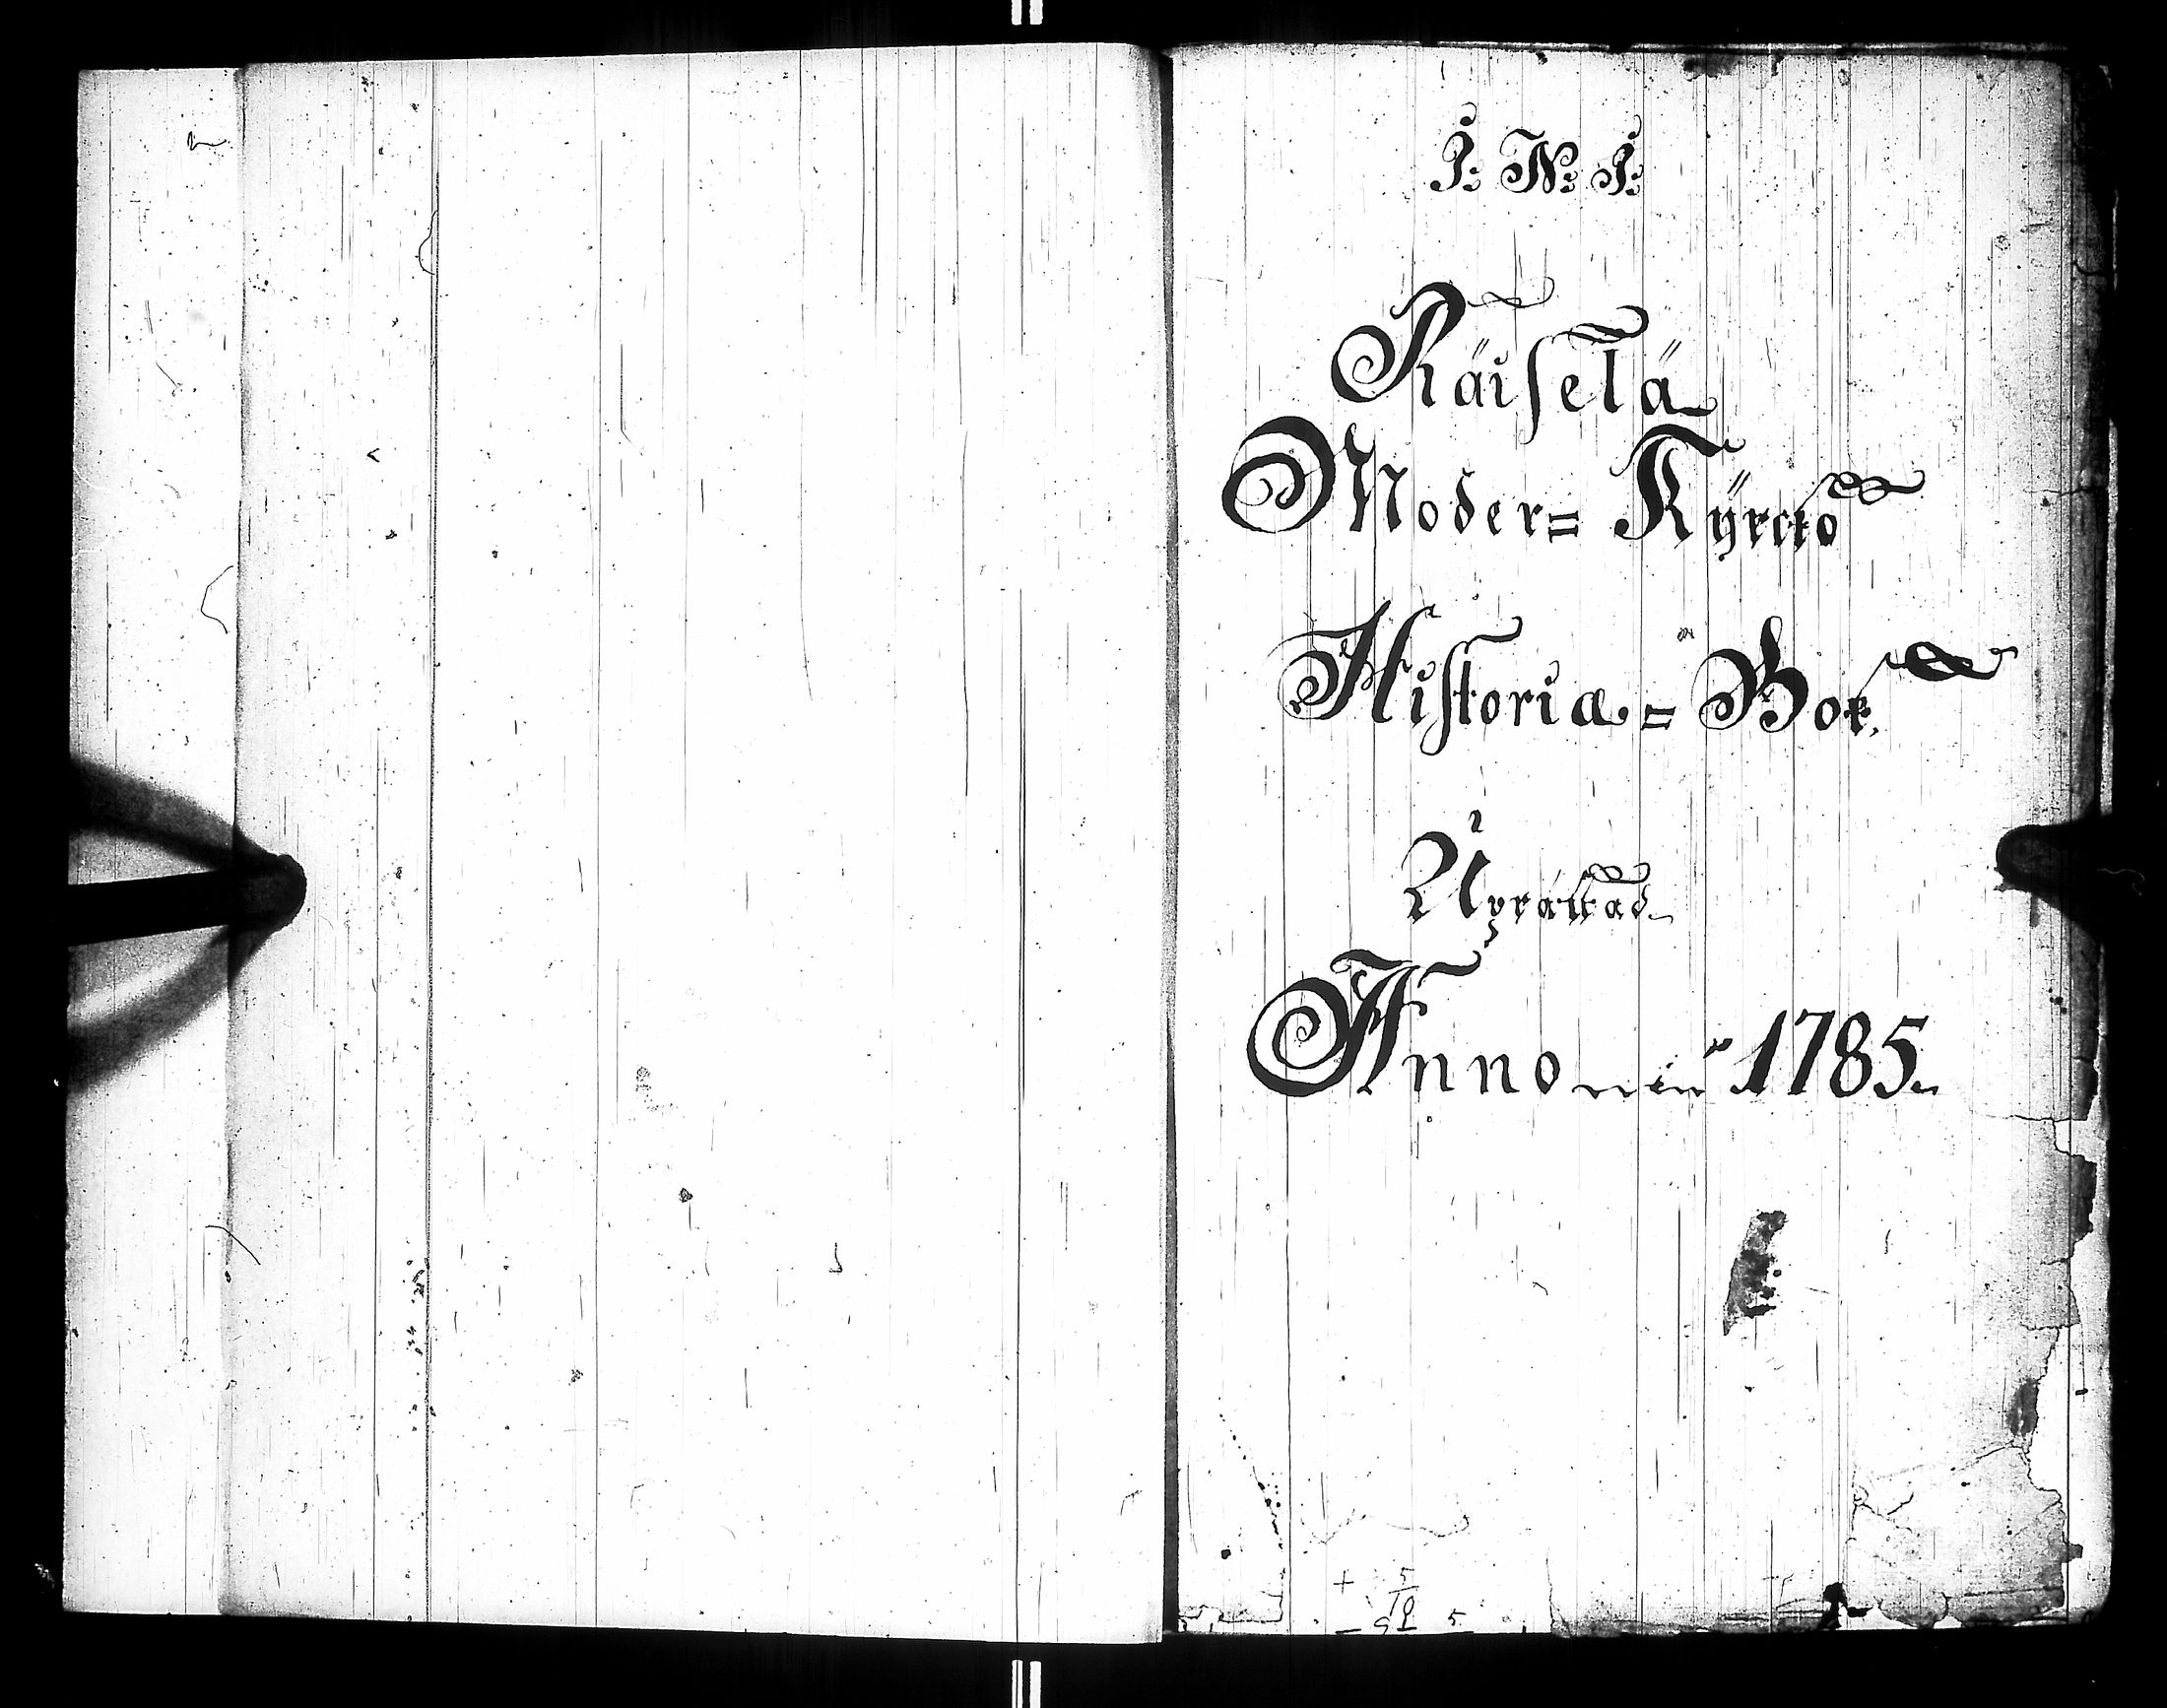 J: N: J:
Räiselä
Moder= Kÿrcko
Historiæ=Bok.
Uprättad
Anno 1785.